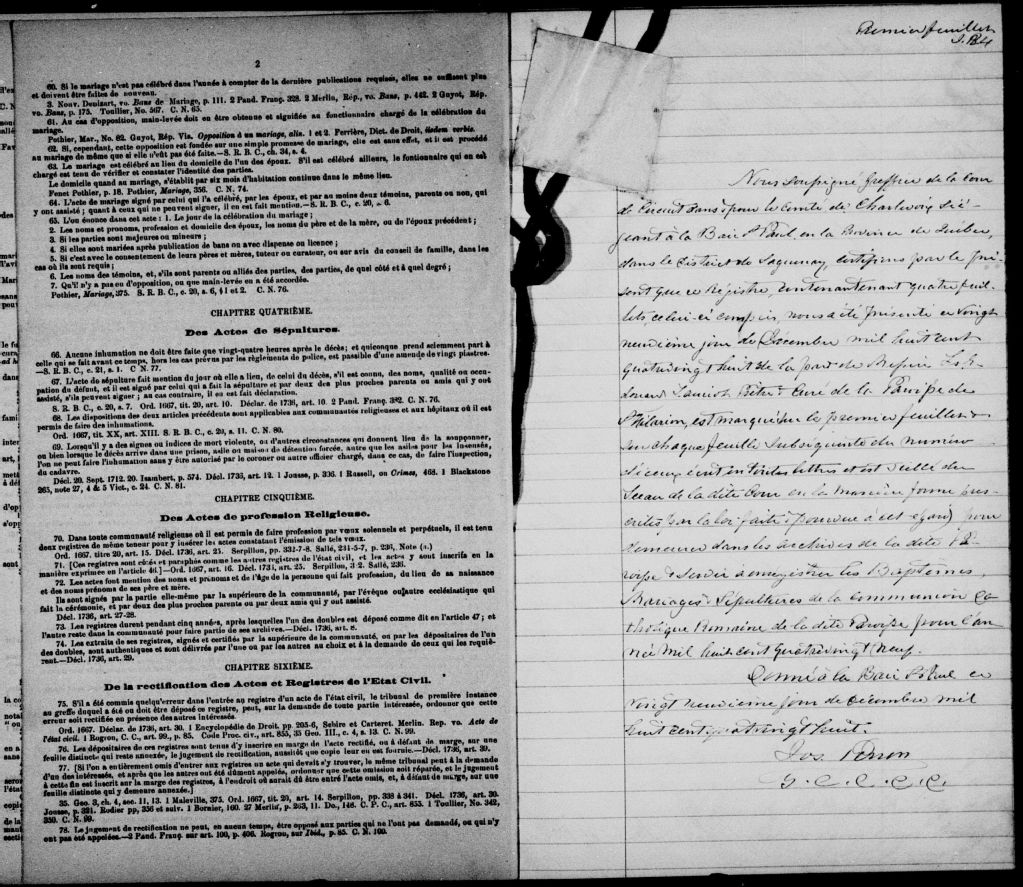 2
60. Si le mariage n'est pas célébré dans l'année à compter de la dernière publications requises, elles ne suffisent plus
et doivent être faites de nouveau.
3. Nouv. Denizart, vo. Bans de Mariage, p. 111. 2 Pand. Franç. 328. 2 Merlin, Rép., vo. Bans, p. 442. 2 Guyot, Rép.
vo. Bans, p. 175. Toullier, No. 567. C. N. 65.
61. Au cas d'opposition, main-levée doit en être obtenue et signifiée au fonctionnaire chargé de la célébration du
mariage.
Pothier, Mar., No. 82. Guyot, Rép. Vis. Opposition à un mariage, alin. 1 et 2. Ferrière, Dict. de Droit, iisdem verbis.
62. Si, cependant, cette opposition est fondée sur une simple promesse de mariage, elle est sans effet, et il est procédé
au mariage de même que si elle n'eût pas été faite.—S. R. B. C., ch. 34, s. 4.
63. Le mariage est célébré au lieu du domicile de l'un des époux. S'il est célébré ailleurs, le fontionnaire qui en est
chargé est tenu de vérifier et constater l'identité des parties.
Le domicile quand au mariage, s'établit par six mois d'habitation continue dans le même lieu.
Fenet Pothier, p. 18. Pothier, Mariage, 356. C. N. 74.
64. L'acte de mariage signé par celui qui l'a célébré, par les époux, et par au moins deux témoins, parents ou non, qui
y ont assisté ; quant à ceux qui ne peuvent signer, il en est fait mention.—S. R. B. C., c. 20, s. 6.
65. L'on énonce dans cet acte : 1. Le jour de la célébration du mariage ;
2. Les noms et pronoms, profession et domicile des époux, les noms du père et de la mère, ou de l'époux précédent ;
3. Si les parties sont mejeures ou mineures ;
4. Si elles sont mariées après publication de bans ou avec dispense ou licence ;
5. Si c'est avec le consentement de leurs pères et mères, tuteur ou curateur, ou sur avis du conseil de famille, dans les
cas où ils sont requis ;
6. Les noms des témoins, et, s'ils sont parents ou alliés des parties, des parties, de quel côté et à quel degré ;
7. Qu'il n'y a pas eu d'opposition, ou que main-levée en a été accordée.
Pothier, Mariage, 375. S. R. B. C., c. 20, s. 6, § 1 et 2. C. N. 76.
CHAPITRE QUATRIÈME.
Des Actes de Sépultures.
66. Aucune inhumation ne doit être faite que vingt-quatre heures après le décès ; et quiconque prend sciemment part à
celle qui se fait avant ce temps, hors les cas prévus par les règlements de police, est passible d'une amende de vingt piastres.
—S. R. B. C., c. 21, s. 1. C N. 77.
67. L'acte de sépulture fait mention du jour où elle a lieu, de celui du décès, s'il est connu, des noms, qualité ou occu-
pation du défunt, et il est signé par celui qui a fait la sépulture et par deux des plus proches parents ou amis qui y ont
assisté, s'ils peuvent signer ; au cas contraire, il en est fait déclaration.
S. R. B. C., c. 20, s. 7. Ord. 1667, tit. 20, art. 10. Déclar. de 1736, art. 10. 2 Pand. Franç. 382. C. N. 76.
68. Les dispositions des deux articles précédents sont applicables aux communautés religieuses et aux hôpitaux où il est
permis de faire des inhumations.
Ord. 1667, tit. XX, art. XIII. S. R. B. C., c. 20, s. 11. C. N. 80.
69. Lorsqu'il y a des signes ou indices de mort violente, ou d'autres circonstances qui donnent lieu de la soupçonner,
ou bien lorsque le décès arrive dans une prison, salle ou maison de détention forcée, autre que les asiles pour les insensés,
l'on ne peut faire l'inhumation sans y être autorisé par le coroner ou autre officier chargé, dans ce cas, de faire l'inspection,
du cadavre.
Décl. 20. Sept. 1712. 20. Isambert, p. 574. Décl. 1736, art. 12. 1 Jousse, p. 336. 1 Russell, on Crimes, 468. 1 Blackstone
265, note 27, 4 & 5 Vict., c. 24. C N. 81.
CHAPITRE CINQUIÈME.
Des Actes de profession Religieuse.
70. Dans toute communauté religieuse où il est permis de faire profession par vœux solennels et perpétuels, il est tenu
deux registres de même teneur pour y insérer les actes constatant l'émission de tels vœux.
Ord. 1667. titre 20, art. 15. Décl. 1736, art. 25. Serpillon, pp. 331-7-8. Sallé, 231-5-7, p. 236, Note (1.)
71. [Ces registres sont cotés et paraphés comme les autres registres de l'état civil, et les actes y sont inscrits en la
manière exprimée en l'article 46.]—Ord. 1667, art. 16. Décl. 1731, art. 25. Serpillon, 3 2. Sallé, 236.
72. Les actes font mention des noms et pronoms et de l'âge de la personne qui fait profession, du lieu de sa naissance
et des noms prénoms de ses père et mère.
Ils sont signés par la partie elle-même par la supérieure de la communauté, par l'évêque ou autre ecclésiastique qui
fait la cérémonie, et par deux des plus proches parents ou par deux amis qui y ont assisté.
Décl. 1736, art. 27-28.
73. Les registres durent pendant cinq années, après lesquelles l'un des doubles est déposé comme dit en l'article 47 ; et
l'autre reste dans la communauté pour faire partie de ses archives.—Décl. 1736, art. 8.
74. Les extraits de ses registres, signés et certifiés par la supérieure de la communauté, ou par les dépositaires de l'un
des doubles, sont authentiques et sont délivrés par l'une ou par les autres au choix et à la demande de ceux qui les requiè-
rent.—Décl. 1736, art. 29.
CHAPITRE SIXIÈME.
De la rectification des Actes et Registres de l'Etat Civil.
75. S'il a été commis quelqu'erreur dans l'entrée au registre d'un acte de l'état civil, le tribunal de première instance
au greffe duquel a été ou doit être déposé ce registre, peut, sur la demande de toute partie intéressée, ordonner que cette
erreur soit rectifiée en présence des autres intéressés.
Ord. 1667. Déclar. de 1736, art. 30. 1 Encyclopédie de Droit. pp. 205-6, Sebire et Carteret. Merlin. Rep. vo. Acte de
l'état civil. 1 Rogron, C. C., art. 99., p. 85. Code Proc. civ., art. 855, 35 Geo. III., c. 4, s. 13. C N. 99.
76. Les dépositaires de ces registres sont tenus d'y inscrire en marge de l'acte rectifié, ou à défaut de marge, sur une
feuille distincte qui reste annexée, le jugement de rectification, aussitôt que copie leur en est fournie.—Décl. 1736, art. 39.
77. [Si l'on a entièrement omis d'entrer aux registres un acte qui devait s'y trouver, le même tribunal peut à la demande
d'un des intéressés, et après que les autres ont été dûment appelés, ordonner que cette omission soit réparée, et le jugement
à cette fin est inscrit sur la marge des registres, à l'endroit où aurait dû être entré l'acte omis, et, à défaut de marge, sur une
feuille distincte qui y demeure annexée.]
35. Geo. 3, ch. 4, sec. 11, 13. 1 Maleville, 375. Ord. 1667, tit. 20, art. 14. Serpillon, pp. 338 à 341. Décl. 1736, art. 30.
Jousse, p. 321. Rodier pp, 356 et suiv. 1 Bornier, 160. 27 Merlin, p. 263, 11. Do., 148. C. P. C., art. 855. 1 Toullier, No. 342,
359. C. N. 99.
78. Le jugement de rectification ne peut, en aucun temps, être opposé aux parties qui ne l'ont pas demandé, ou qui n'y
ont pas été appelées.—2 Pand. Franç. sur art. 100, p. 406. Rogron, sur Ibid., p. 85. C N. 100.
Premier feuillet
Nous soussigné greffier de la Cour
de Circuit dans & pour le Comté de Charlevoix sié-
geant à la Baie St Paul en la Province de Québec,
dans le District de Saguenay, certifions par le pré-
sent que ce Registre, contenant quatre feuil-
lets celui-ci compris, nous a été présenté ce vingt
neuvième jour de Décembre mil huit cent
quatrevingt huit de la part de Messire
Prêtre & Curé de la Paroisse de
St Hilarion, est marqué sur le premier feuillet &
sur chaque feuille subséquente du numéro
d'iceux écrit en toutes lettres et est scellé du
Sceau de la dite Cour en la manière & forme pres-
crites par la loi faite & pourvue à cet égard pour
demeurer dans les archives de la dite Pa-
roisse & servir à enregistrer les Baptêmes,
Mariages & Sépultures de la Communion Ca-
tholique Romaine de la dite Paroisse pour l'an-
née mil huit cent quatrevingt neuf.
Donné à la Baie St Paul ce
vingt neuvième jour de Décembre mil
huit cent quatrevingt huit.
Jos. Perron
G. C. C. C. C.